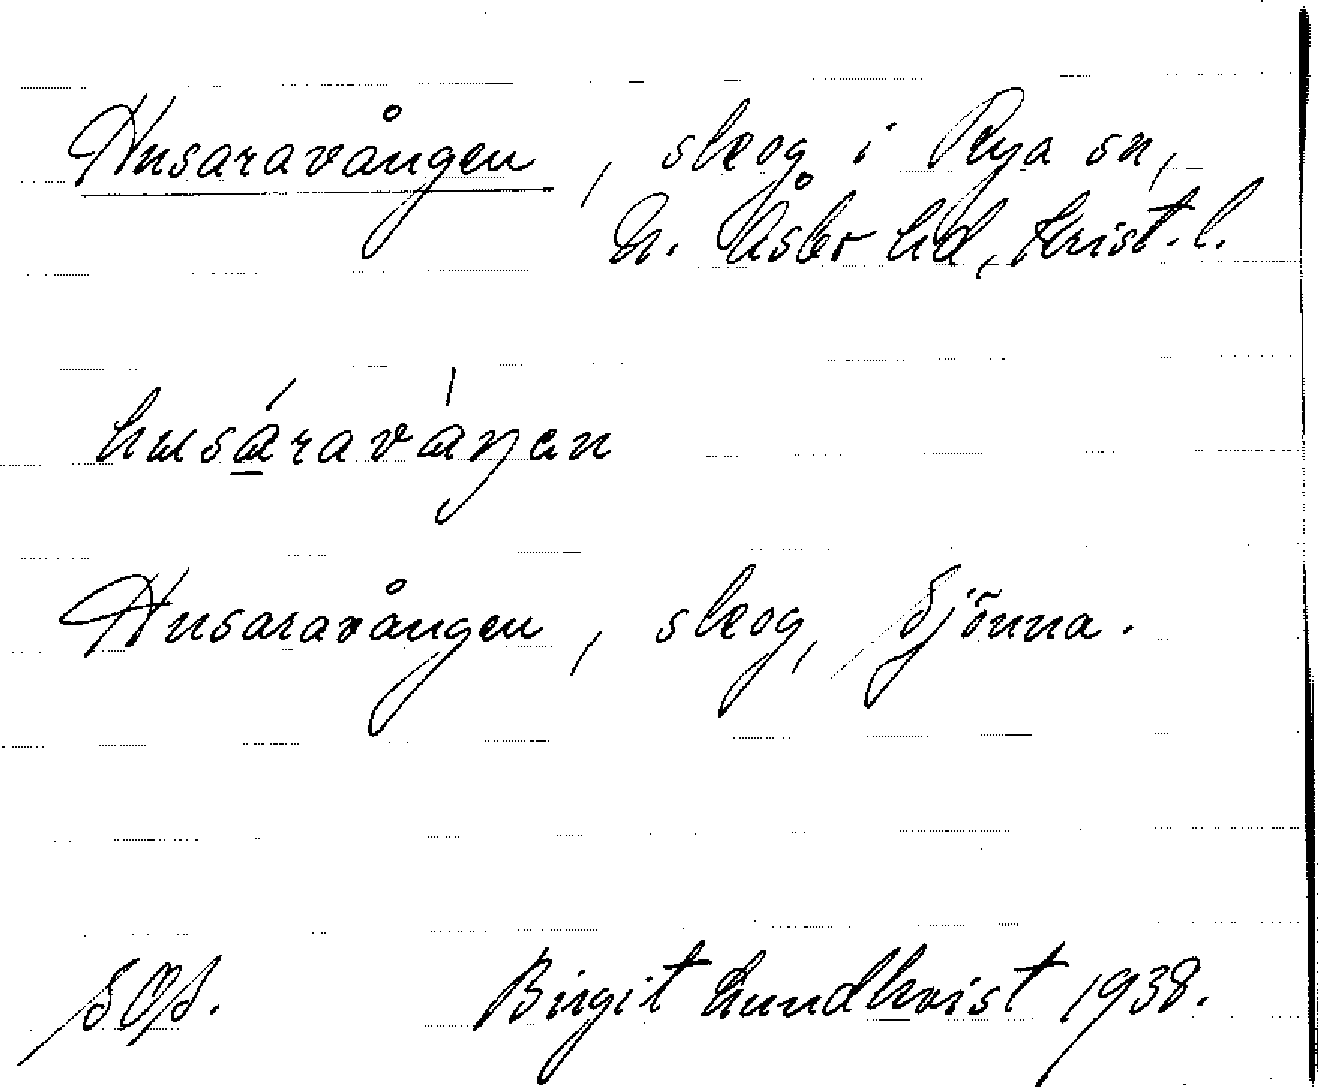 Husaravången, skog i Rya sn,
N. Åsbo hd, Krist. l.
husáraváŋen
Husaravången, skog, Sjönna.
SOS. Birgit Lundkvist 1938.